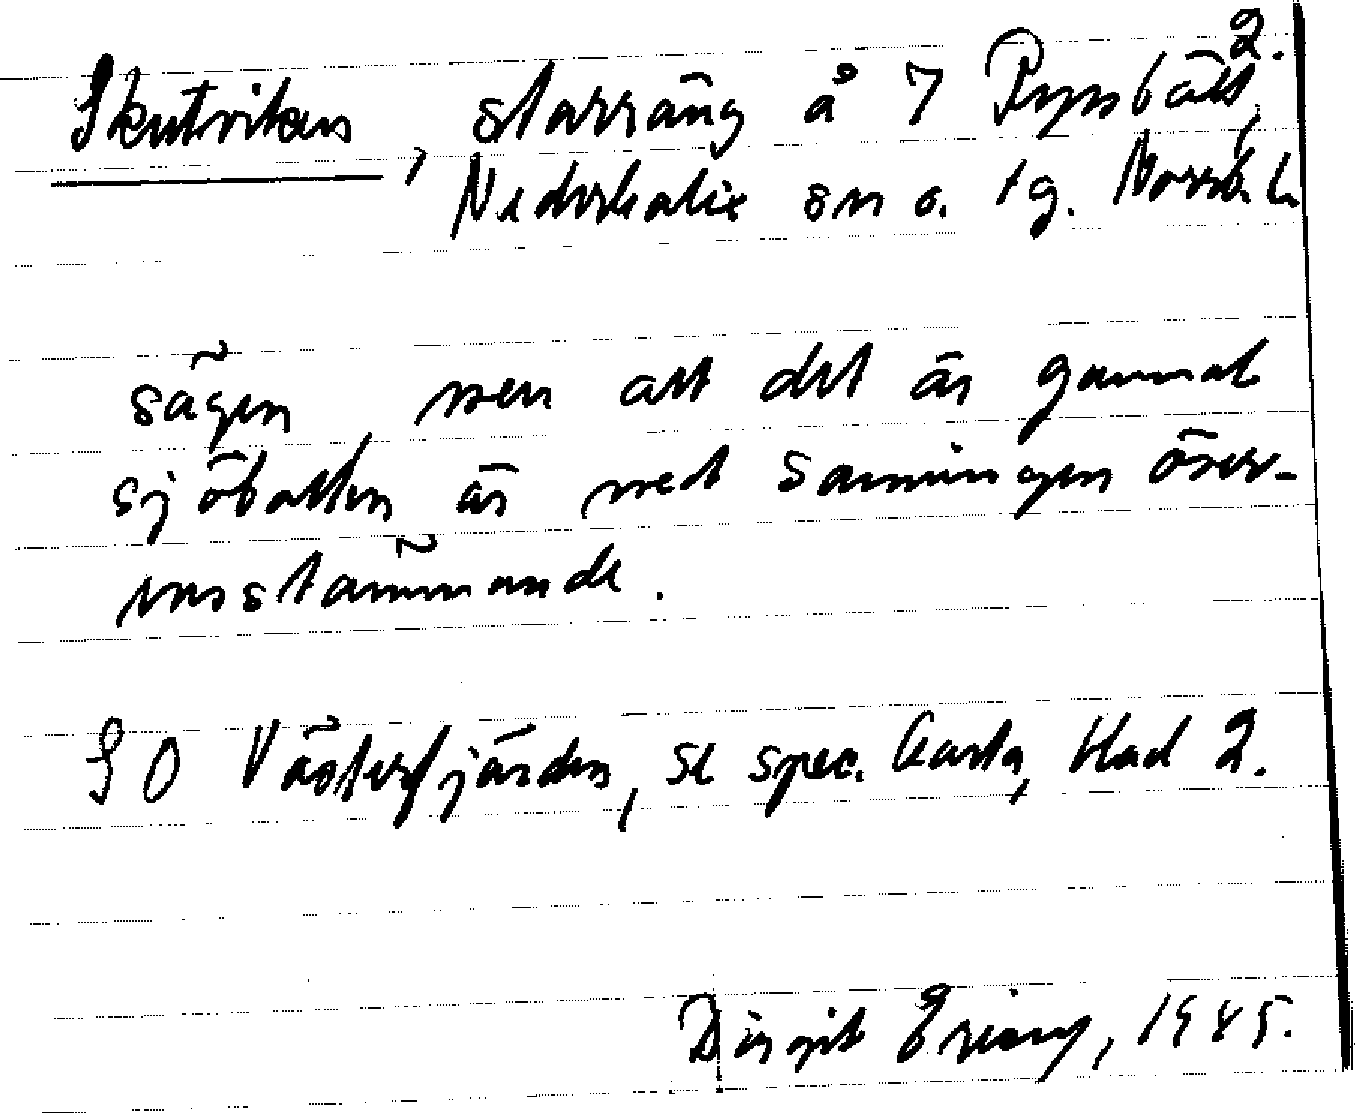 2.
Skutviken, starräng å 7 Rynbäck,
Nederkalix sn o. tg. Norrb. l.
sägen, men att det är gammal
sjöbotten är med sanningen över-
ensstämmande.
SO Västerfjärden, se spec. karta, blad 2.
Birgit Eriay, 1985.